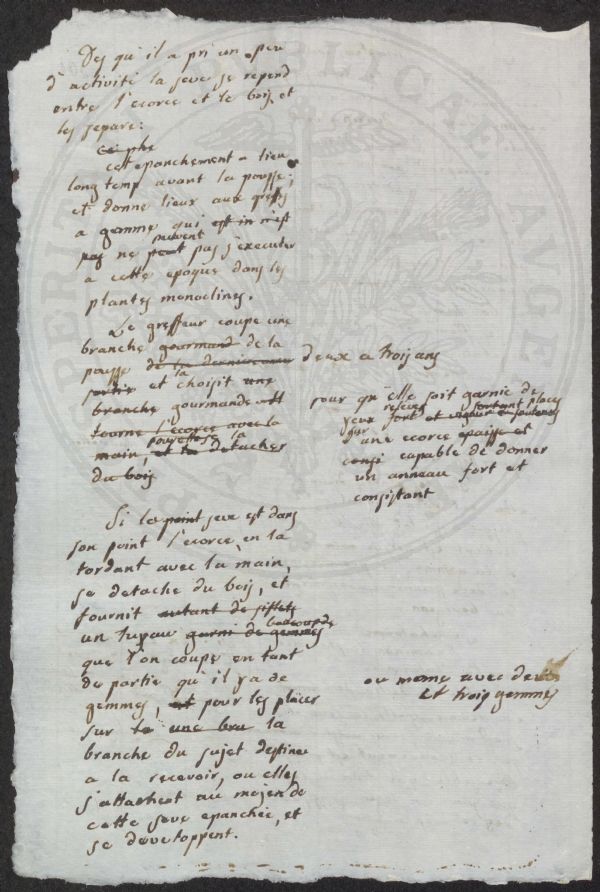 Des qu'il a pri un peu
d'activité la seve se repend
entre l'ecorce et le bois et
les separe:
Ce phe
cet epanchement a lieu
long temp avant la pousse;
et donne lieux aux greffes
a gemme qui est in n'est
peuvent
pas ne peut pas s'executer
a cette epoque dans les
plantes monoclines.
Le greffeur coupe une
branche gourmand de la
pousse de la derniere deux a trois ans
sortie et choisit une la
branche gourmande et
tourne l'ecorce avec la
pour la
main, et la detacher
du bois
pour qu'elle soit garnie de
yeux fort et vigour
d'une ecorce epaisse et
consi capable de donner
un anneau fort et
consistant
Si la point seve est dans
son point l'ecorce en la
tordant avec la main,
se detache du bois, et
fournit autant de sifflets
beaucoup de
un tuyau garni de gemmes
que l'on coupe en tant
de partie qu'il y a de
gemmes, et pour les placer
ou meme avec deux
et trois gemmes
sur la une bra la
branche du sujet destinee
a la recevoir, ou elles
s'attachent au moyen de
cette seve epanchée, et
se developpent.